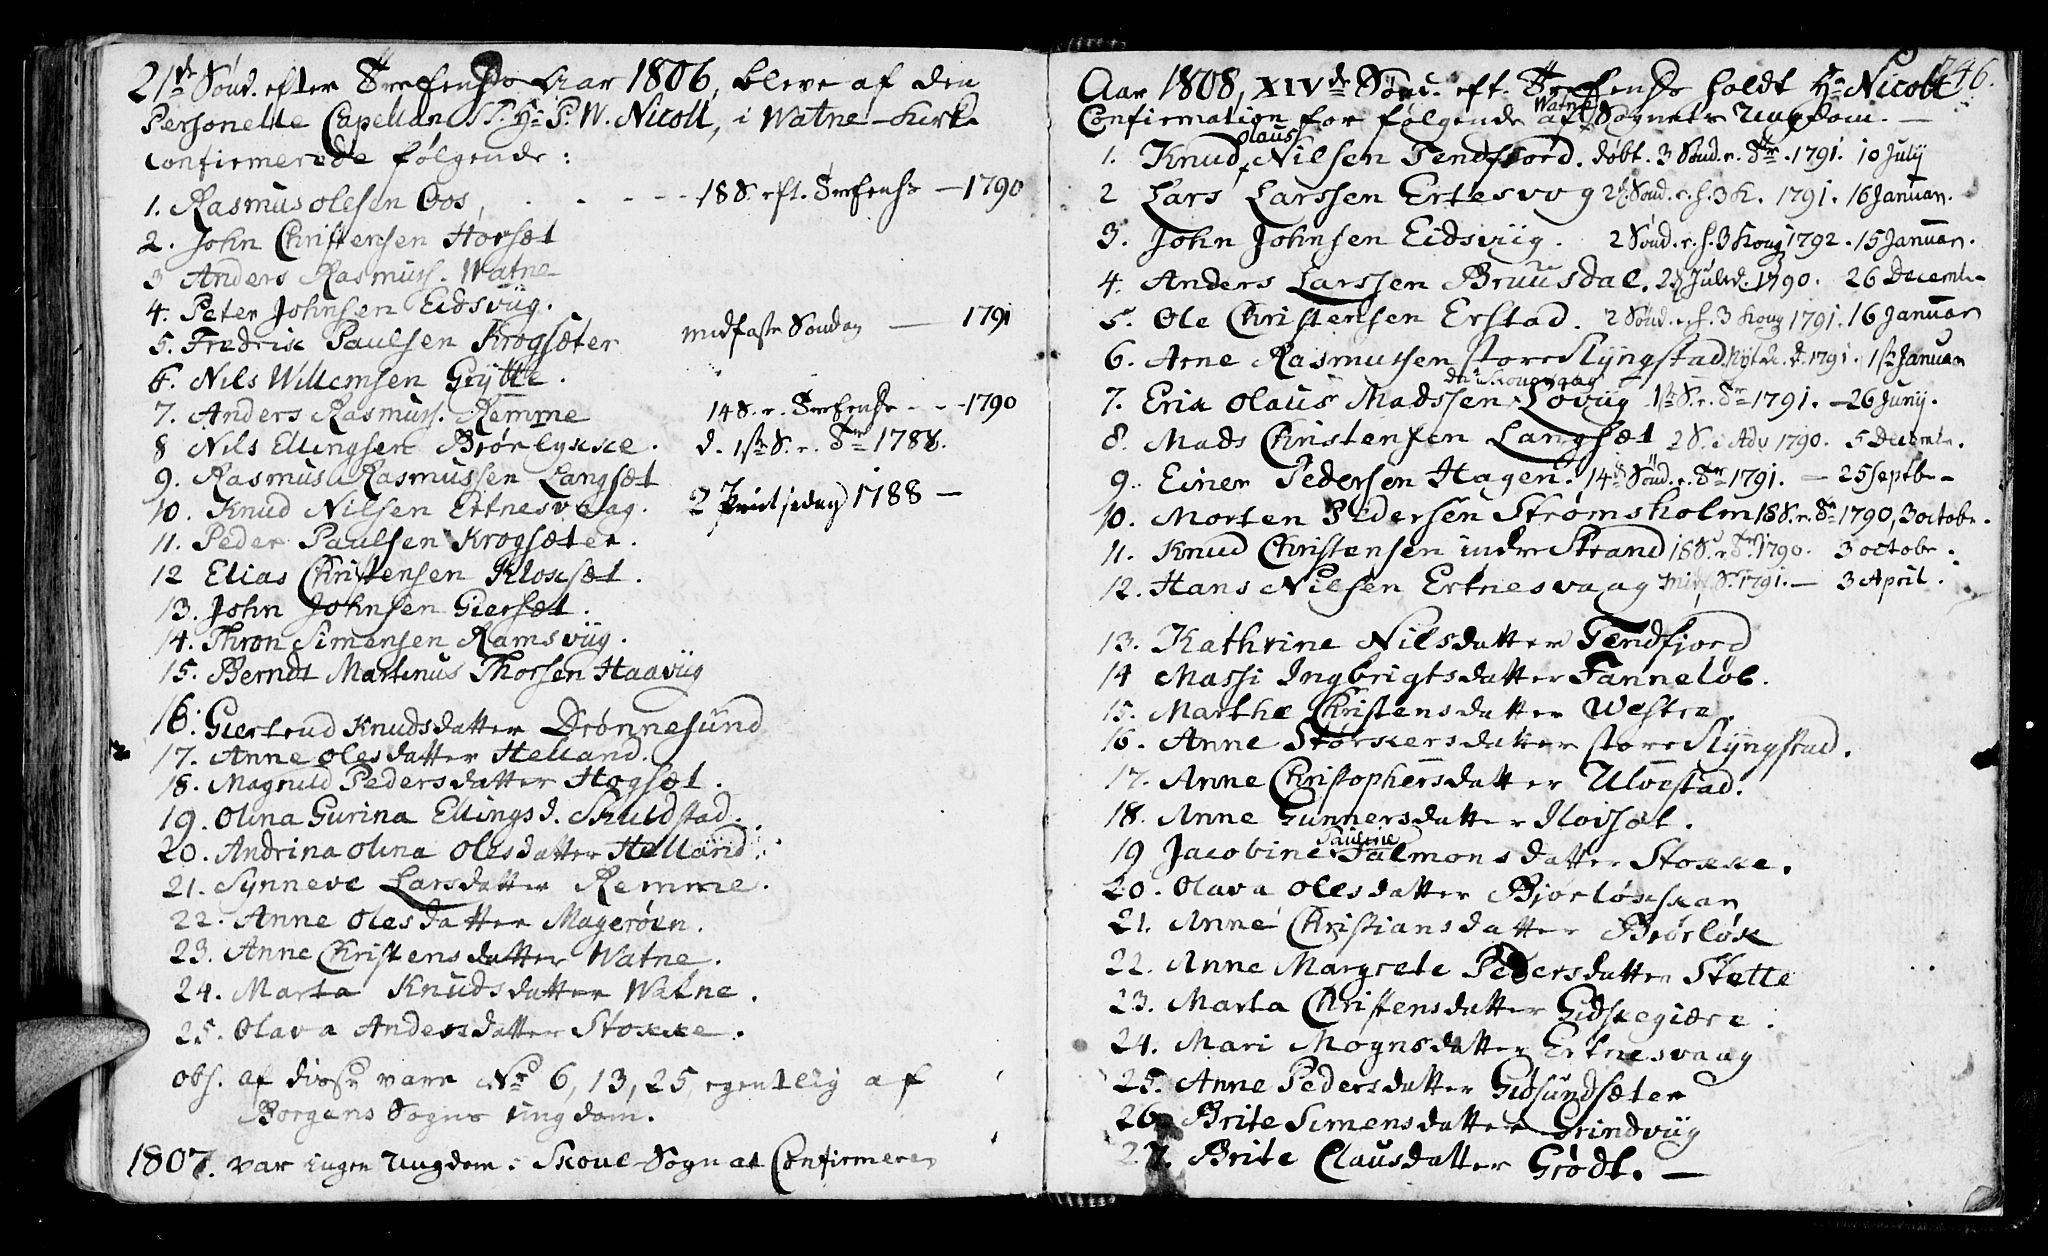 21de Sønd. efter Trefensh Aar 1806, bleve af den
Personelle Capellan S.T. Hr P. W. Nicoll, i Watne-Kirke
confirmerede følgende:
1. Rasmus Olesen Oos, - - - 18 S. eft. Trefensh — 1790
2. John Christensen Horsæt
3 Anders Rasmuss. Watne
4. Peter Johnsen Eidsviig.
5. Fredrik Paulsen Krogsæter midfaste Søndag — 1791
6. Nils Willemsen Grytte.
7. Anders Rasmuss. Remme 14 S. e. Trefensh - - 1790
8 Nils Ellingsen Brørlykke. d. 1ste S. e. Tr 1788.
9. Rasmus Rasmussen Langsæt
10. Knud Nilsen Ertnesvaag. 2 Pintsedag 1788 —
11. Peder Paulsen Krogsæter.
12 Elias Christensen Kloksæt.
13. John Johnsen Giersæt.
14. Thron Simensen Ramsviig.
15. Berndt Martinus Thorsen Haaviig
16. Giertrud Knudsdatter Drønnesund
17. Anne Olesdatter Helland.
18. Magnild Pedersdatter Hogsæt.
19. Olina Gurina Ellingsd. Skuldstad.
20. Andrina Olina Olesdatter Helland.
21. Synneve Larsdatter Remme.
22. Anne Olesdatter Magerøen.
23. Anne Christensdatter Watne.
24. Marta Knudsdatter Watne.
25. Olava Andersdatter Stokke.
Obs. af disse vare No 6, 13, 25, egentlig af
Borgens Sogns ungdom.
1807. var ingen Ungdom i Skoue-Sogn at Confirmere
246.
Aar 1808, XIVde Sønd. eft. Trefensh holdt Hr Nicoll
Confirmation for følgende af Watne Sognets Ungdom. —
1. Knud Olaus Nilsen Tendfiord. døbt. 3 Sønd. e. Tr. 1791. 10 July
2 Lars Larssen Ertesvog 2. Sønd. e. h. 3 K. 1791. 16 Januar.
3. John Johnsen Eidsviig. 2 Sønd. e. h. 3 Kong 1792. 15 Januar.
4. Anders Larssen Bruusdal. 2d Juled. 1790. 26 Decembr
5. Ole Christensen Erstad. 2 Sønd. e. h. 3 Kong 1791. 16 Januar
6. Arne Rasmussen store Slyngstad Nyt d. 1791. 1ste Januar
7. Erik Olaus Madssen Løviig 1ste S. e. Tr 1791. — 26 Juny.
8. Mads Christensen Langsæt 2 S. i Adv 1790. 5 Decembr.
9. Einer Pedersen Hagen. 14de Sønd. e. Tr 1791. — 25 Septbr —
10. Morten Pedersen Strømsholm 18 S. e. Tr 1790, 3 octobr.
11. Knud Christensen indre Strand 18 S. e. Tr 1790. 3 octobr.
12. Hans Nielsen Ertnesvaag Midf. S. 1791. — 3 April.
13. Kathrine Nilsdatter Tendfjord
14 Massi Ingbrigtsdatter Fanneløb.
15. Marthe Christensdatter Westre.
16. Anne Størkersdatter store Slyngstad.
17. Anne Christophersdatter Ulvestad.
18. Anne Gunnersdatter Iløisæt.
19 Jacobine Pauline Salmonsdatter Stokke.
20. Olava Olesdatter Bjørløkkan
21. Anne Christiansdatter Brørløk
22. Anne Margrete Pedersdatter Stette
23. Marta Christensdatter Gidskegiære.
24. Mari Mognsdatter Ertnesvaag
25. Anne Pedersdatter Gidsundsæter
26. Brite Simensdatter Grindviig
27. Brite Clausdatter Grødt. —